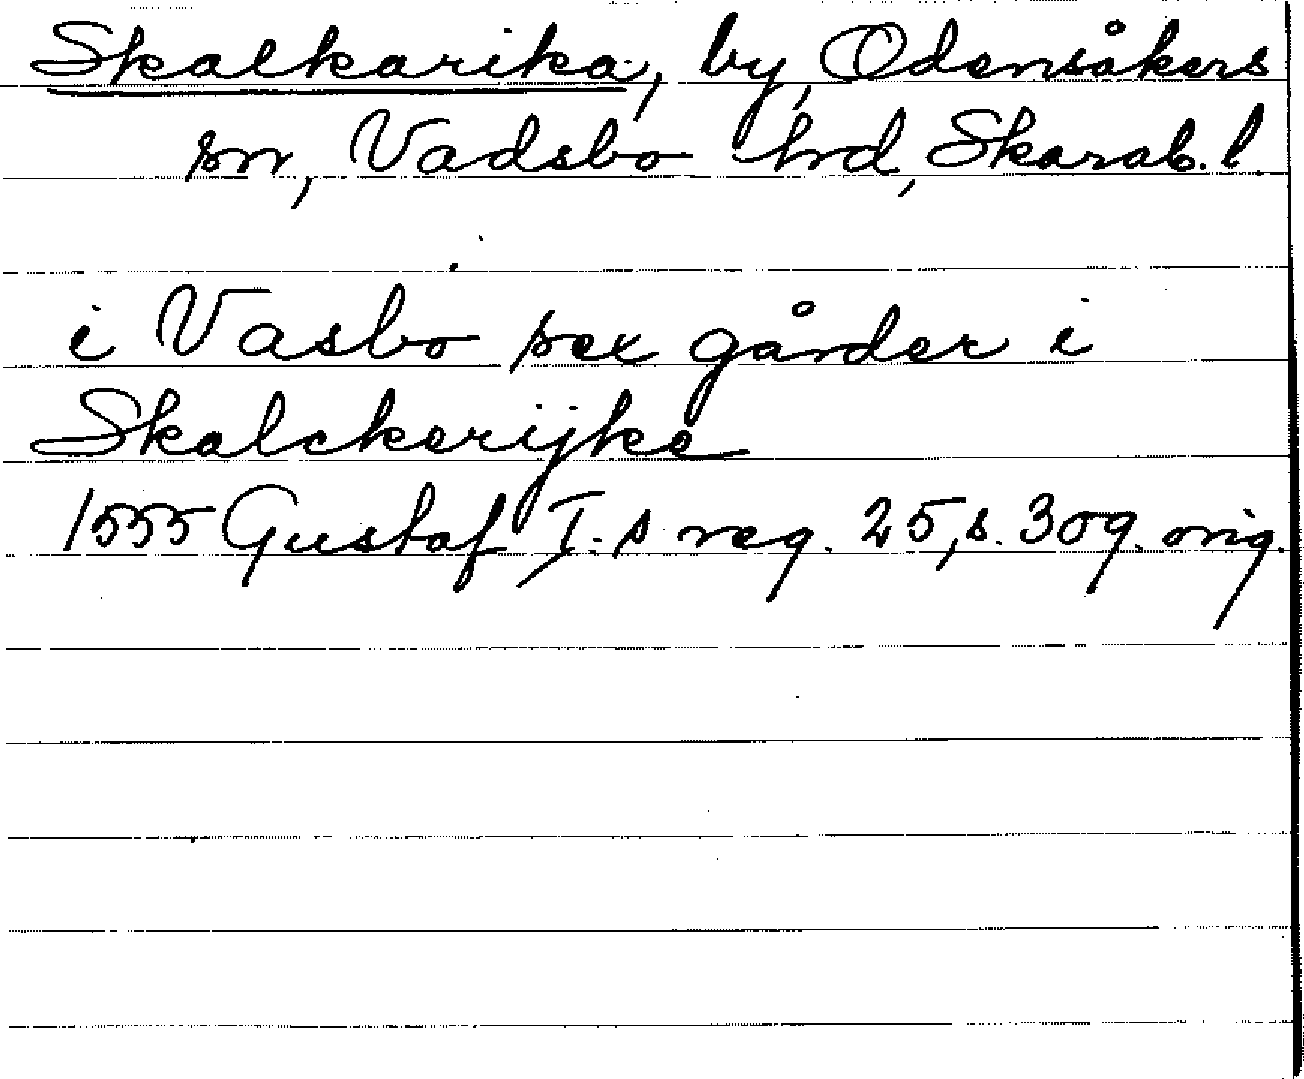 Skalkarika, by, Odensåkers
sn, Vadsbo hrd, Skarab. l.
i Vasbo sex gårder i
Skalckerijke
1555 Gustaf I:s reg. 25, s. 309. orig.